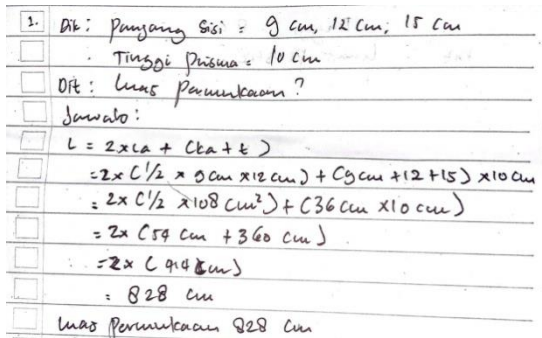 1. Dik: panjang sisi = 9 cm, 12 cm, 15 cm
Tinggi prisma = 10 cm
Dit: luas permukaan?
Jawab:
L = 2 x La + (ka + t)
= 2 x (1/2 x 9 cm x 12 cm) + (9 cm + 12 + 15) x 10 cm
= 2 x (1/2 x 108 cm²) + (36 cm x 10 cm)
= 2 x (54 cm + 360 cm)
= 2 x (414 cm)
= 828 cm
luas permukaan 828 cm